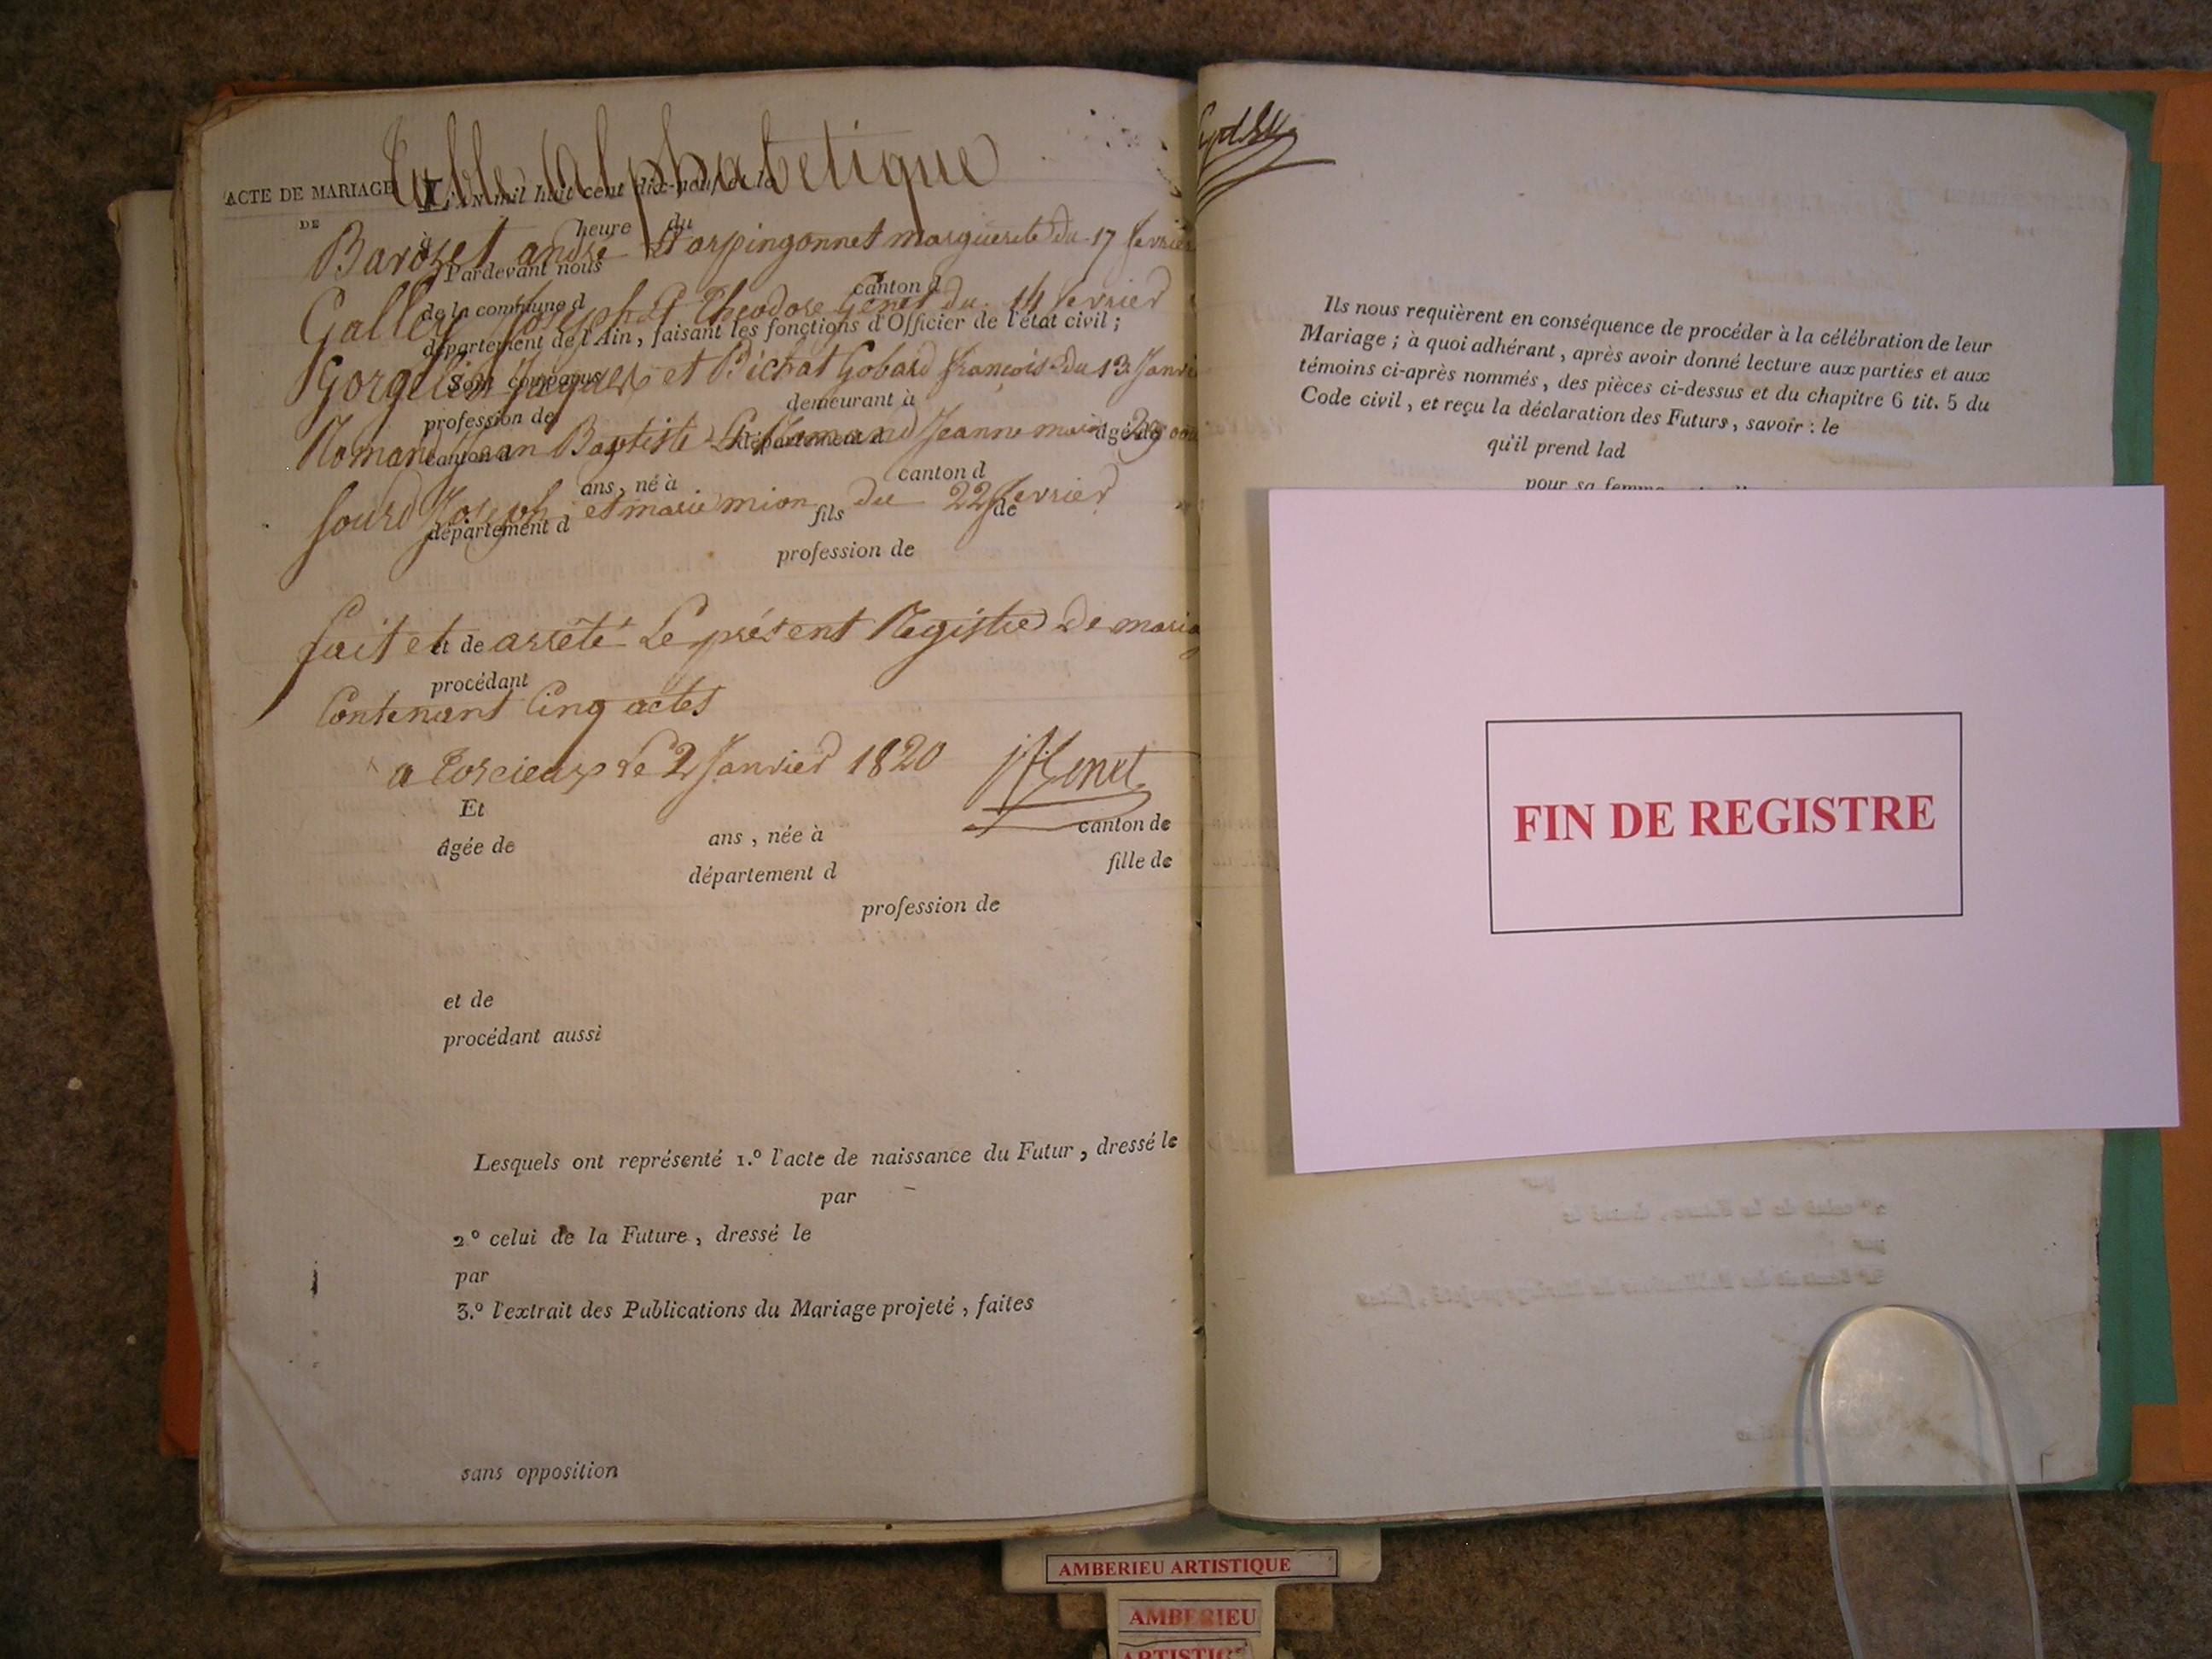 Table alphabetique
ACTE DE MARIAGE L'AN mil huit cent dix-neuf et le
DE
à heure du
Barozet andré Et arpingonnet marguerite du 17 fevrier
Pardevant nous
de la commune d canton d
Galley Joseph Et Theodore Genet du 14 fevrier
département de l'Ain, faisant les fonctions d'Officier de l'état civil ;
Sont comparus
et Bichat Gobard françoise du 13 Janvi
profession de demeurant à
canton d département d âgé de
Romand Jean Baptiste Et Romand Jeanne marie 29
ans, né à canton d
Sourd Joseph et marie mion du 22 fevrier
département d fils de
profession de
fait et arrêté Le présent Registre De maria
et de
procédant
Contenant Cinq actes
a Torcieux Le 2 Janvier 1820 Genet
Et
âgée de ans, née à canton de
département d fille de
profession de
et de
procédant aussi
Lesquels ont représenté 1.º l'acte de naissance du Futur, dressé le
par
2º celui de la Future, dressé le
par
3.º l'extrait des Publications du Mariage projeté, faites
sans opposition
Ils nous requièrent en conséquence de procéder à la célébration de leur
Mariage ; à quoi adhérant, après avoir donné lecture aux parties et aux
témoins ci-après nommés, des pièces ci-dessus et du chapitre 6 tit. 5 du
Code civil, et reçu la déclaration des Futurs, savoir : le
qu'il prend lad
pour sa femme
FIN DE REGISTRE
AMBERIEU ARTISTIQUE
AMBERIEU
ARTISTIQ